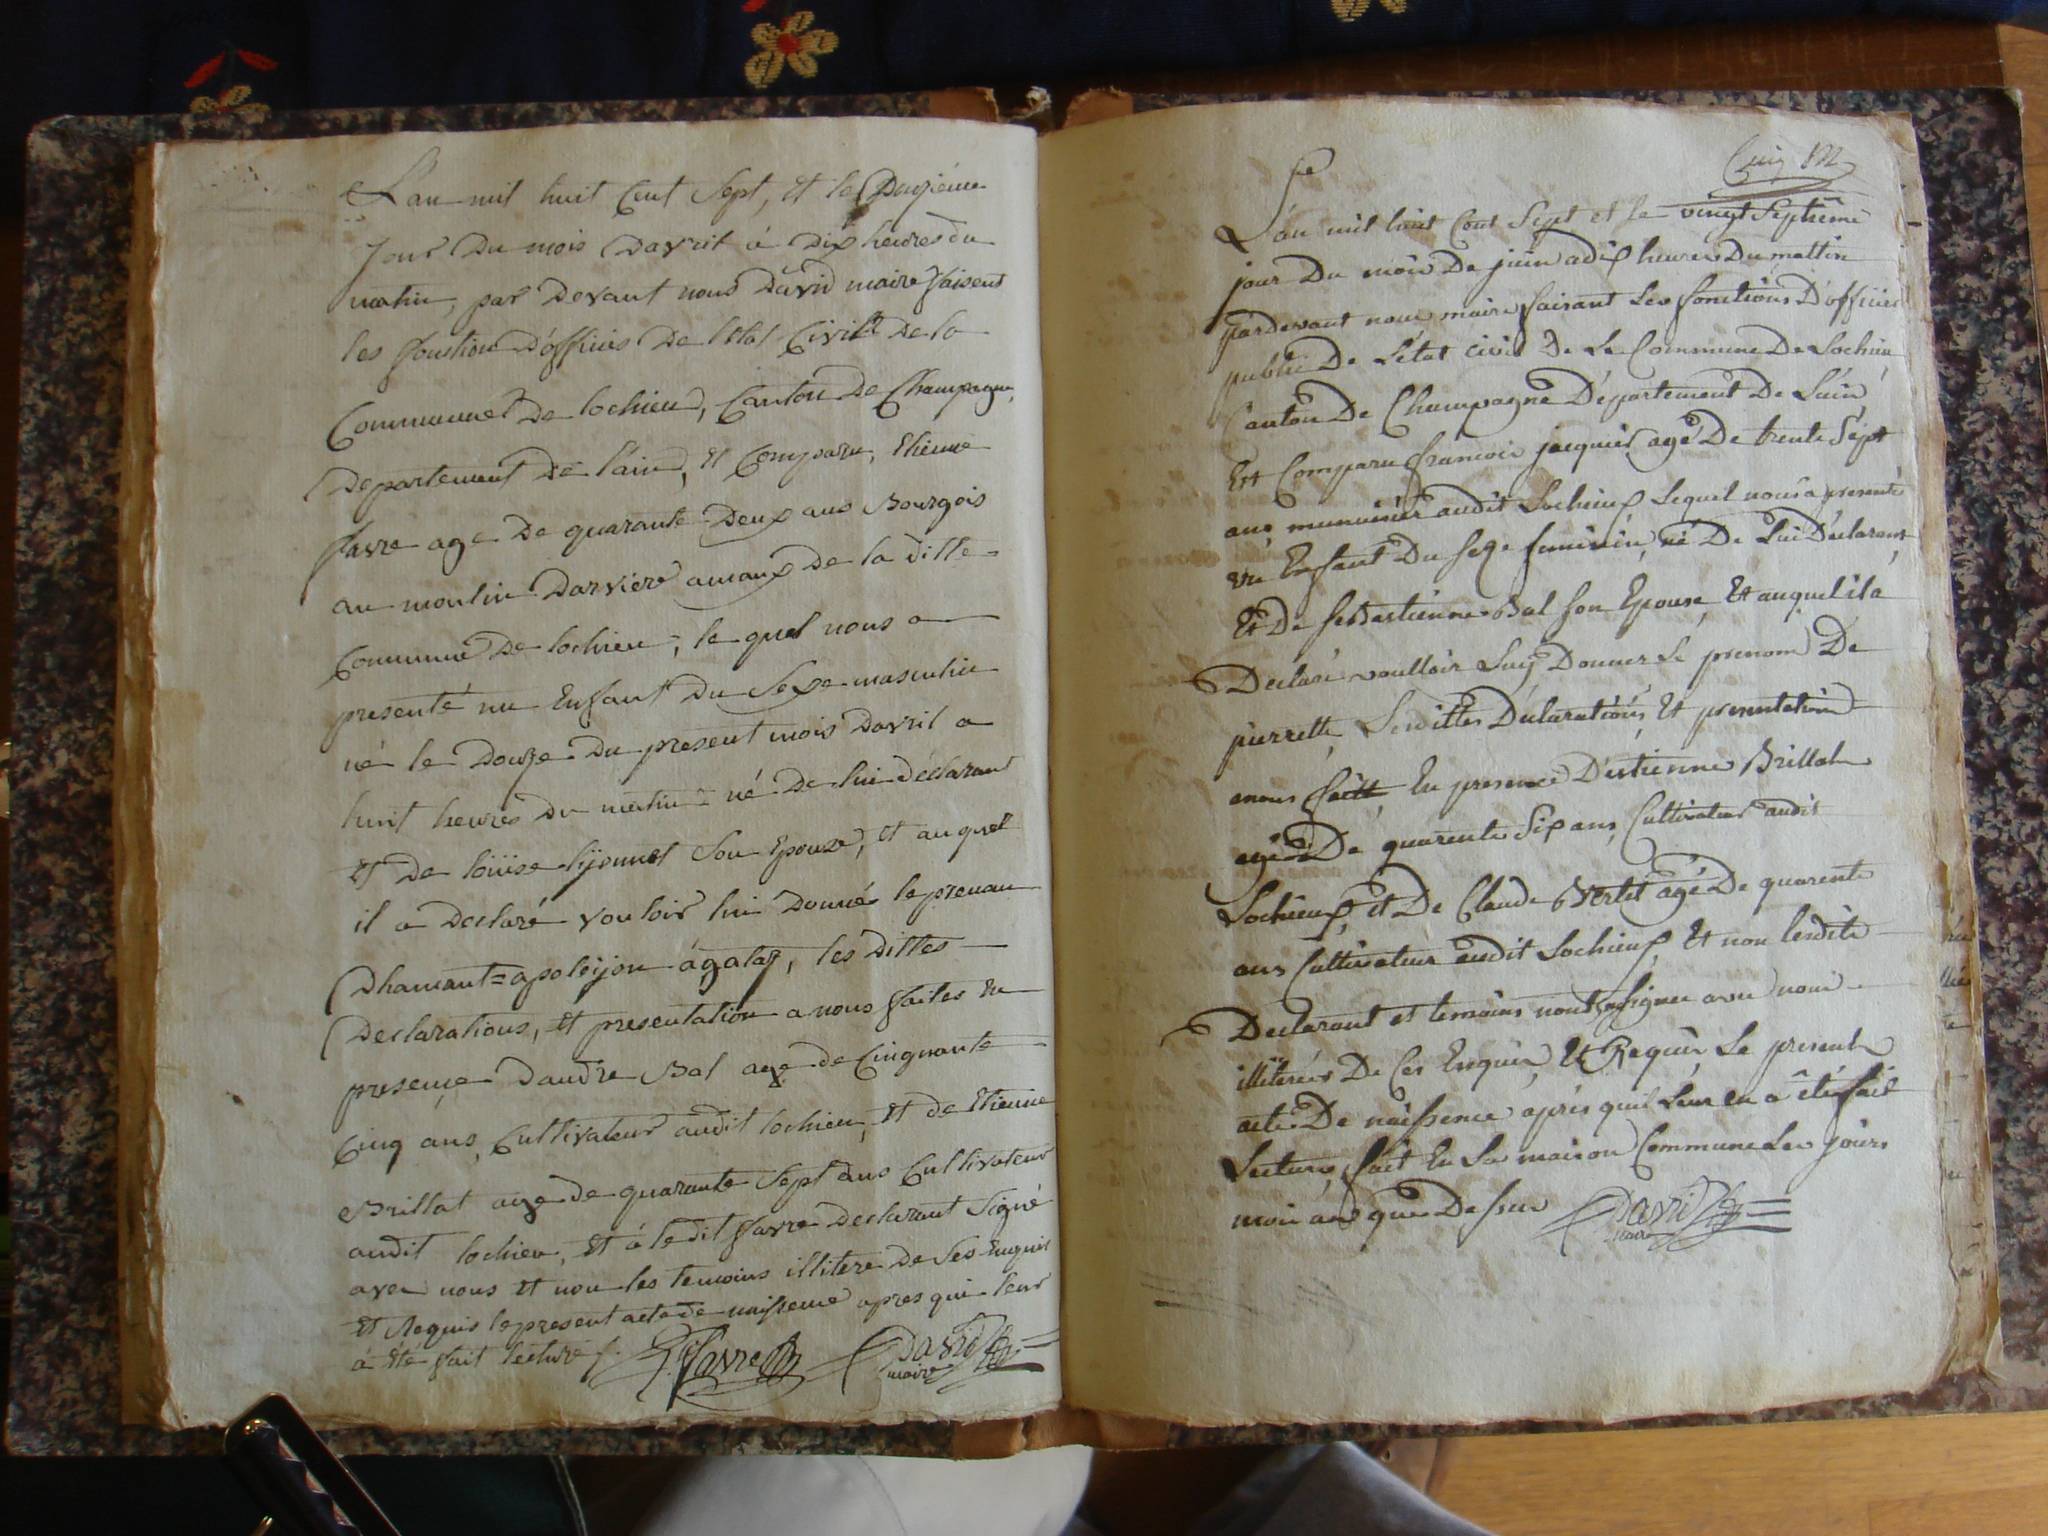 L'an mil huit Cent Sept, et le Douzième
Jour Du mois Davril à Dix heures du
matin, par Devant nous David maire faisent
les fonction d'officies De l'Etat Civill de la
Commune De lochieu, Canton De Champagne,
Departement De l'ain, et Comparu, Etienne
favre age De quarante Deux ans Bourgois
au moulin Darviere amaux De la ditte
Commune De lochieu, le quel nous a
presenté un Enfant Du Sexe masculin
né le Douze Du present mois Davril a
huit heures du matin né De lui déclarant
et De Loüise Sou Epouze, et auquel
il a declaré vouloir lui Donné le prenau
Dhamant=apoleijon agatas, les dittes
Declarations, et presentation a nous faites En
presence Dandre Bal age de Cinquante
Cinq ans, Cultivateur audit lochieu, et de Etienne
Brillat age de quarante Sept ans Cultivateur
audit lochieu, Et à ledit favre Declarant Signé
avec nous et non les temoins illitere De Ses Enquis
et Requis le present acte de naissence apres que leur
à Eté fait lecture
Favre David
maire
L'an mil huit Cent Sept et le vingt Septieme
jour Du mois De juin a dix heures Du mattin
pardevant nous maire faisant Les fonctions D'officier
public De L'état civil de La Commune De Lochieu
Canton De Champagne Département De L'ain
Est Comparu francois jacquier agé De trente Sept
ans, audit Lochieux Lequel nous a presenté
un Enfant Du Sexe feminin, né De Lui Declarant
Et De Sebastienne Bal Son Epouse, Et auquel il a
Declaré voulloir Luy Donner Le prenom De
pierrette Lesdittes Declarations Et presentation
anous faitte En presence D'estienne Brillat
agé De quarente Six ans Cultivateur audit
Lochieux, et De Claude Bertet agé De quarente
ans Cultivateur audit Lochieux, Et non Lesdits
Declarant et temoins signer avec nous
illiterés De Ces Enquis, Et Requis Le present
acte De naissence apres quil Leur en a été fait
Lecture, fait En La maison Commune Les jours
mois an que Dessus David
maire